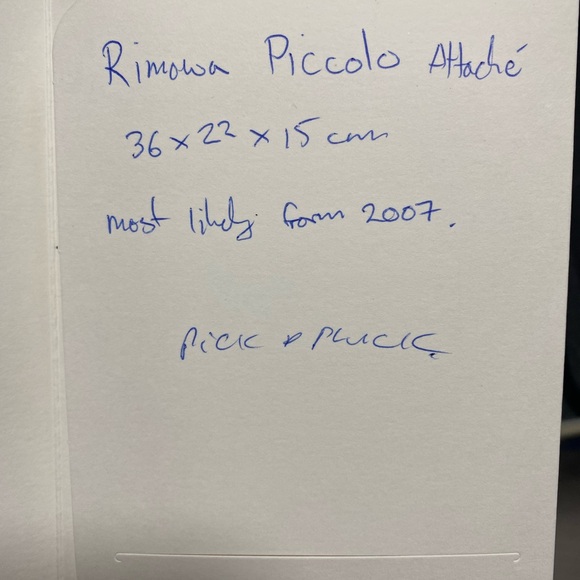 Rimowa Piccolo Attaché
36 x 22 x 15 cm
most likely from 2007.
PICK & PLUCK.